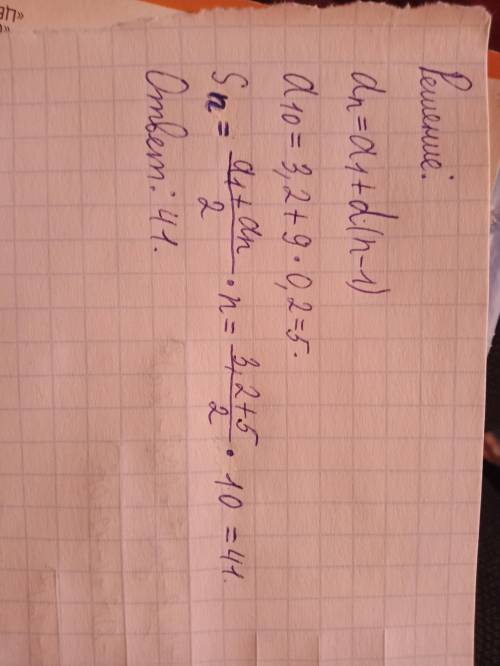 Решение:
an=a1+d·(n-1)
a10=3,2+9·0,2=5.
Sn=(a1+an)/2·n=(3,2+5)/2·10=41.
Ответ: 41.